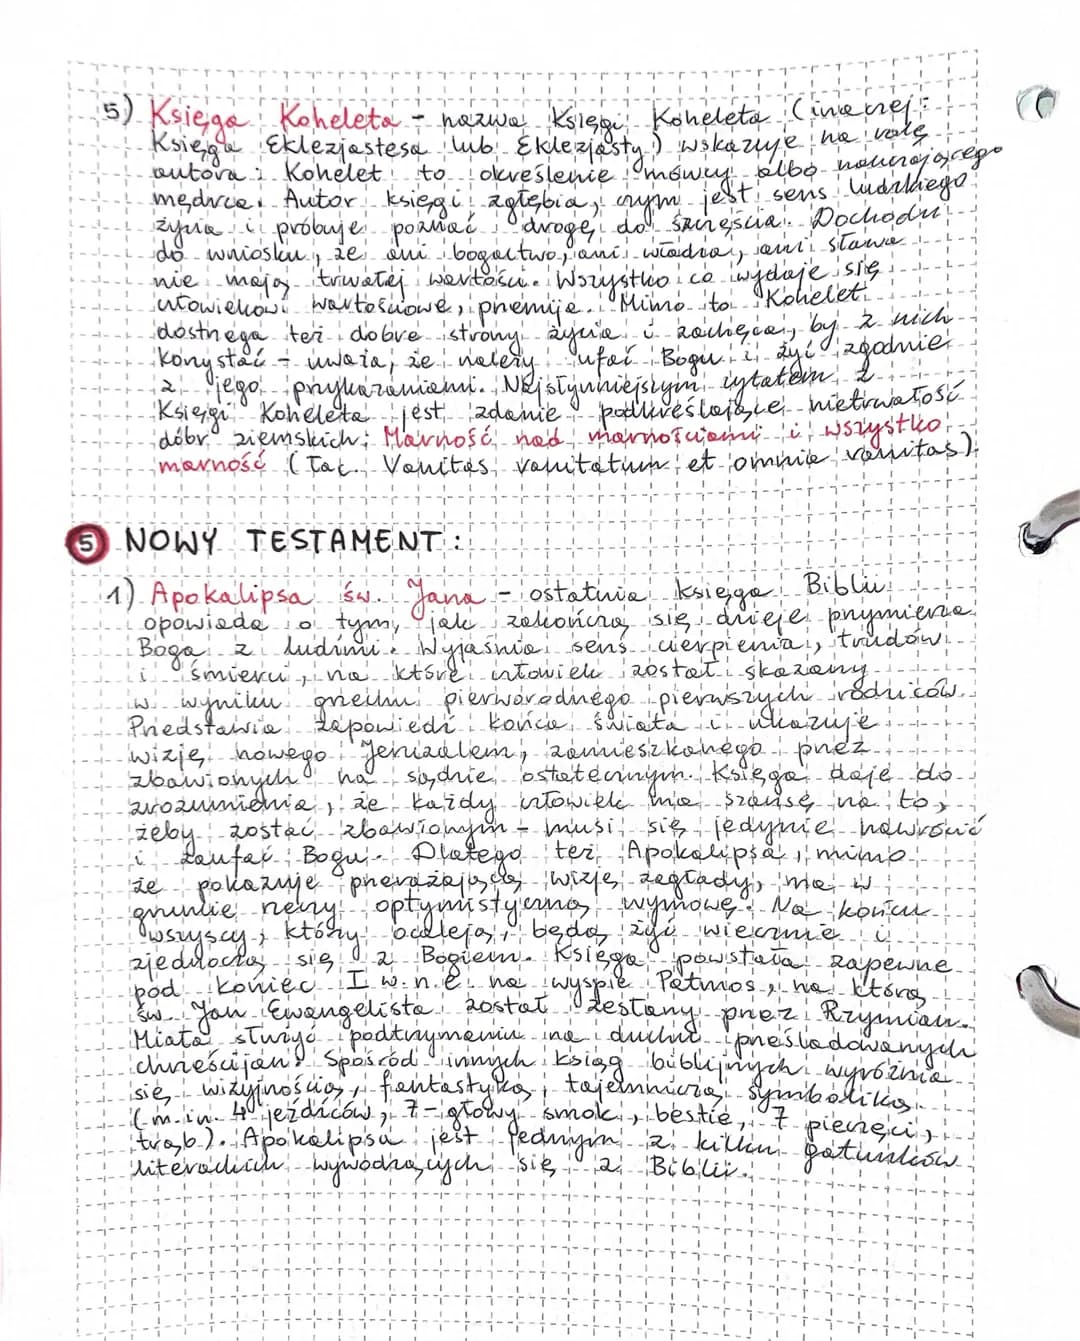 5) Księga Koheleta - nazwa Księgi Koheleta (inaczej:
Księga Eklezjastesa lub Eklezjasty) wskazuje na rolę
autora: Kohelet to określenie mówcy albo nauczającego
mędrca. Autor księgi zgłębia, czym jest sens ludzkiego
życia i próbuje poznać drogę do szczęścia. Dochodzi
do wniosku, że ani bogactwo, ani władza, ani sława
nie mają trwałej wartości. Wszystko co wydaje się
człowiekowi wartościowe, przemija. Mimo to Kohelet
dostrzega też dobre strony życia i zachęca, by z nich
korzystać - uważa, że należy ufać Bogu i żyć zgodnie
z jego przykazaniami. Najsłynniejszym cytatem z
Księgi Koheleta jest zdanie podkreślające nietrwałość
dóbr ziemskich: Marność nad marnościami i wszystko
marność (łac. Vanitas vanitatum et omnia vanitas).
5 NOWY TESTAMENT:
1) Apokalipsa św. Jana - ostatnia księga Biblii
opowiada o tym, jak zakończą się dzieje przymierza
Boga z ludźmi. Wyjaśnia sens cierpienia, trudów
i śmierci, na które człowiek został skazany
w wyniku grzechu pierworodnego pierwszych rodziców.
Przedstawia zapowiedź końca świata i ukazuje
wizję nowego Jeruzalem, zamieszkanego przez
zbawionych na sądzie ostatecznym. Księga daje do
zrozumienia, że każdy człowiek ma szansę na to,
żeby zostać zbawionym - musi się jedynie nawrócić
i zaufać Bogu. Dlatego też Apokalipsa, mimo
że pokazuje przerażającą wizję zagłady, ma w
gruncie rzeczy optymistyczną wymowę. Na końcu
wszyscy, którzy ocaleją, będą żyć wiecznie i
zjednoczą się z Bogiem. Księga powstała zapewne
pod koniec I w.n.e. na wyspie Patmos, na którą
św. Jan Ewangelista został zesłany przez Rzymian.
Miała służyć podtrzymaniu na duchu prześladowanych
chrześcijan. Spośród innych ksiąg biblijnych wyróżnia
się wizyjnością, fantastyką, tajemniczą symboliką
(m.in. 4 jeźdźców, 7-głowy smok, bestie, 7 pieczęci,
trąb). Apokalipsa jest jednym z kilku gatunków
literackich wywodzących się z Biblii.